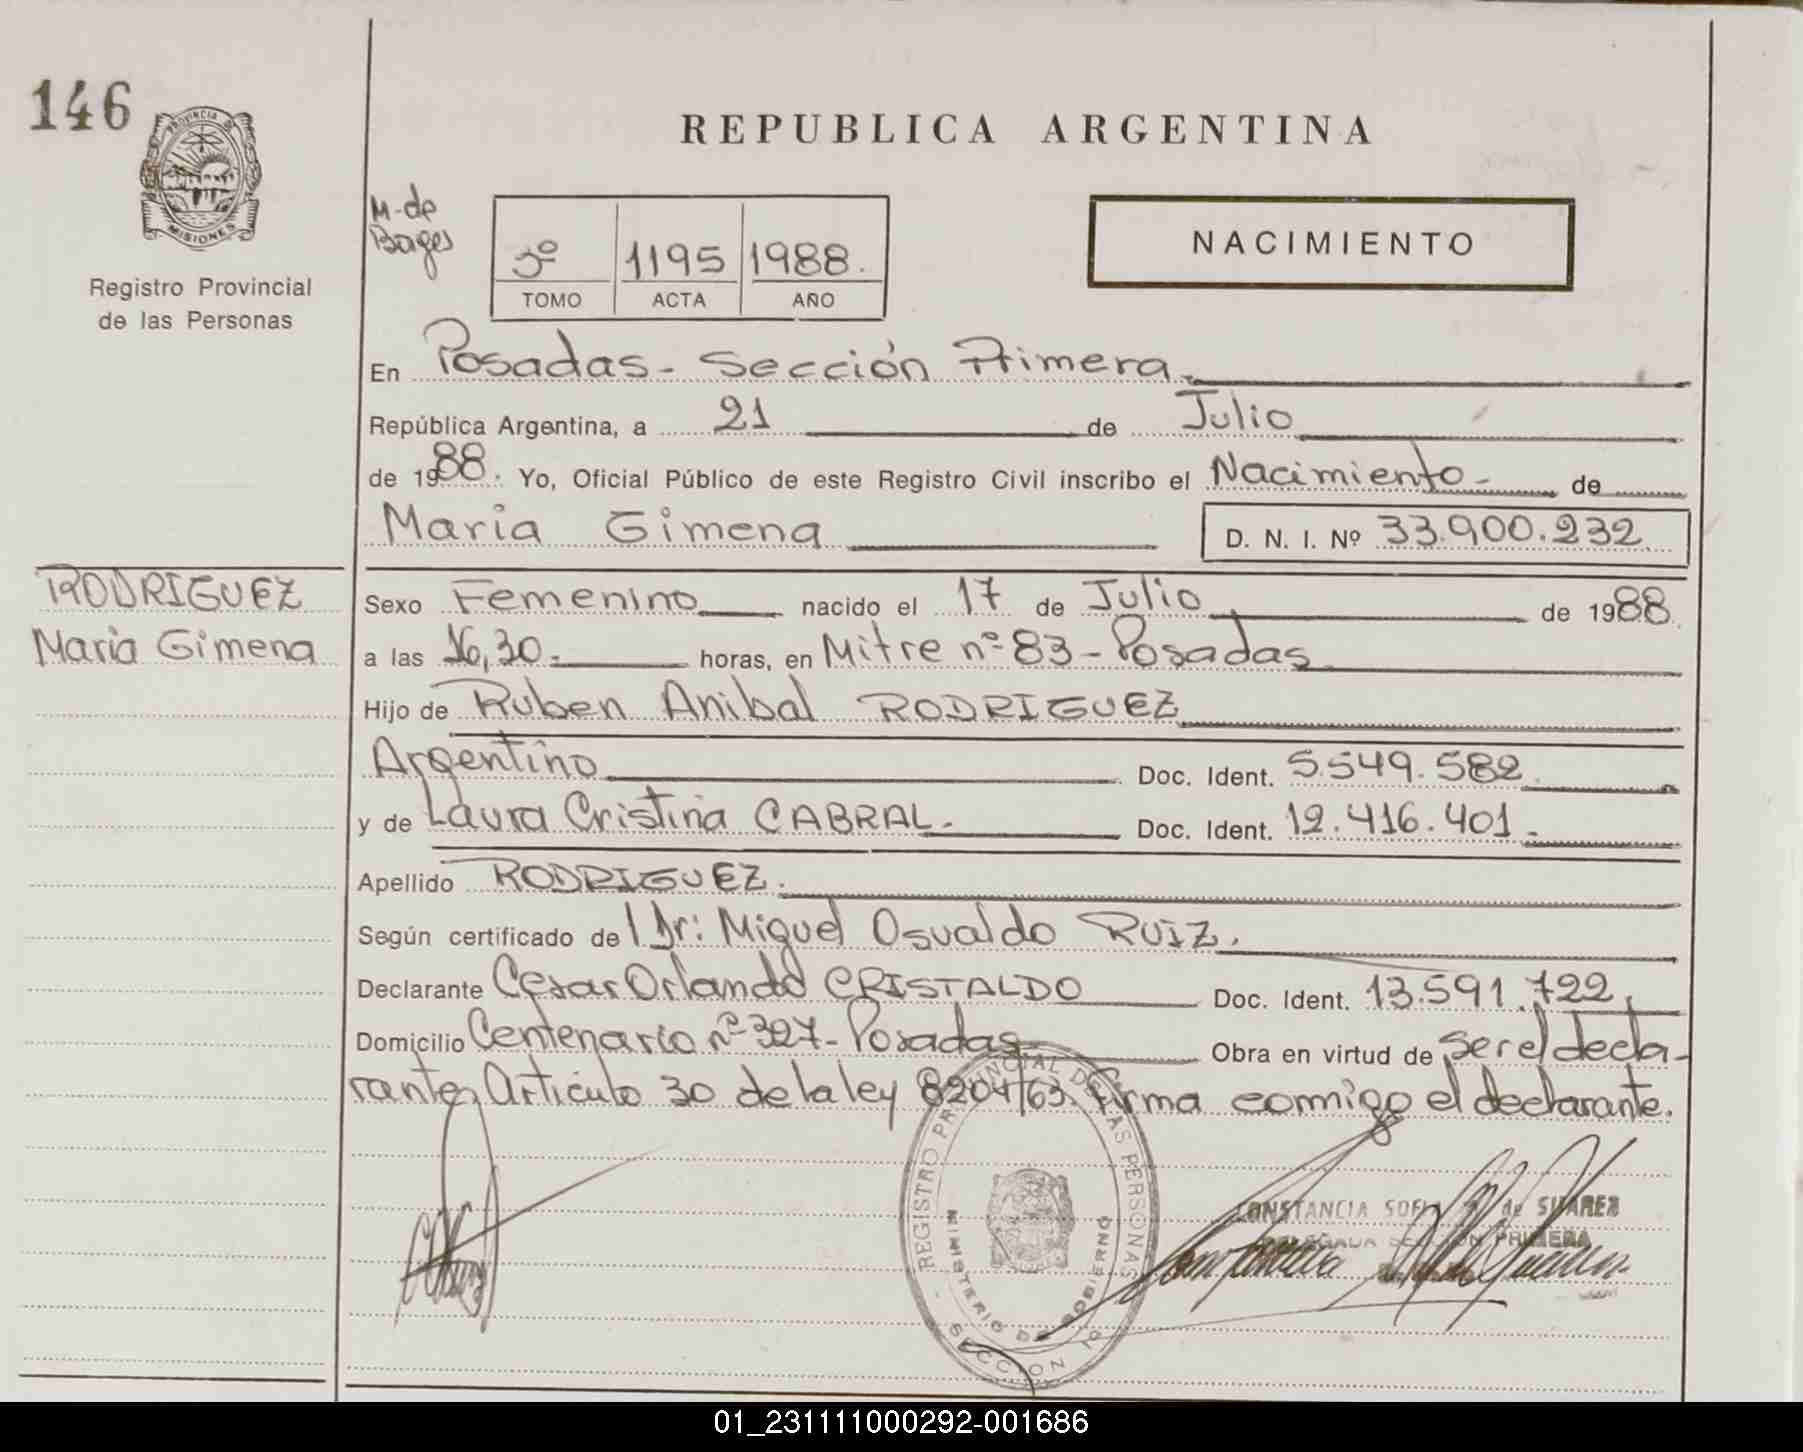 146
PROVINCIA DE
MISIONES
Registro Provincial
de las Personas
REPUBLICA ARGENTINA
M. de
Bages
3º 1195 1988.
TOMO ACTA AÑO
NACIMIENTO
En Posadas - Sección Primera.
República Argentina, a 21 de Julio
de 1988. Yo, Oficial Público de este Registro Civil inscribo el Nacimiento - de
Maria Gimena D. N. I. Nº 33.900.232
RODRIGUEZ
Maria Gimena
Sexo Femenino nacido el 17 de Julio de 1988.
a las 16,30. horas, en Mitre nº 83 - Posadas
Hijo de Ruben Anibal RODRIGUEZ
Argentino Doc. Ident. 5.549.582
y de Laura Cristina CABRAL. Doc. Ident. 12.416.401.
Apellido RODRIGUEZ.
Según certificado del Dr: Miguel Osvaldo RUIZ.
Declarante Cesar Orlando CRISTALDO Doc. Ident. 13.591.722,
Domicilio Centenario nº 327 - Posadas Obra en virtud de ser el decla-
rante, Articulo 30 de la ley 8204/63. Firma conmigo el declarante.
REGISTRO PROVINCIAL DE LAS PERSONAS
MINISTERIO DE GOBIERNO
SECCION Nº
CONSTANCIA SOFIA de SUAREZ
DELEGADA SECCION PRIMERA
01_231111000292-001686